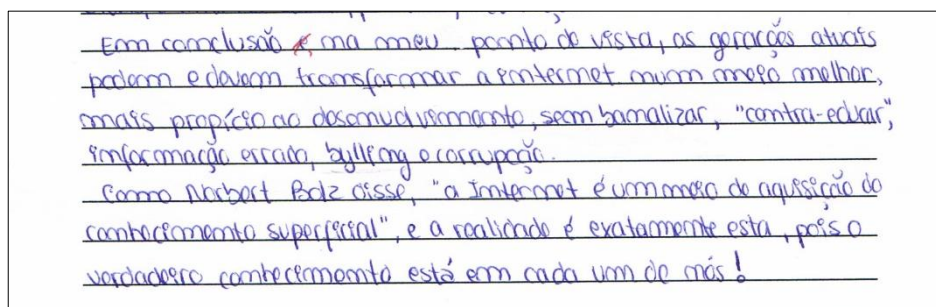 Em conclusão e, na meu ponto de vista, as gerações atuais
podem e devem transformar a internet num meio melhor,
mais propício ao desenvolvimento, sem banalizar, "contra-educar",
informação errada, bylling e corrupção.
Como Norbert Bolz disse, "a Internet é um meio de aquisição do
conhecimento superficial", e a realidade é exatamente esta, pois o
verdadeiro conhecimento está em cada um de nós!